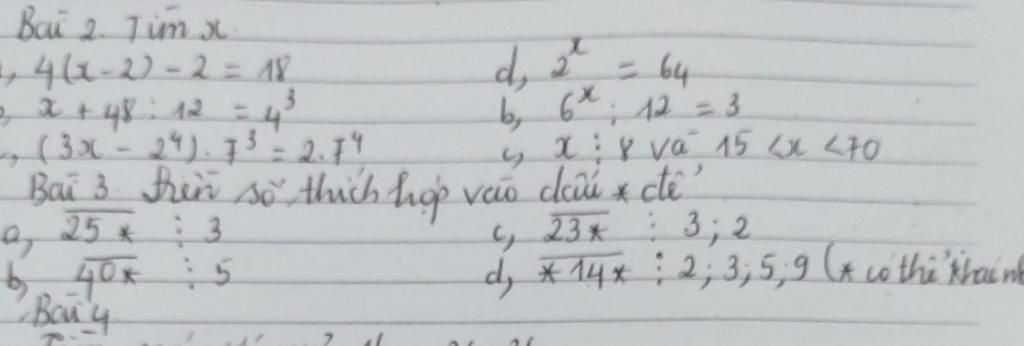 Bài 2. Tìm x
, 4(x-2) - 2 = 18 d, 2^x = 64
, x + 48 : 12 = 4^3 b, 6^x : 12 = 3
, (3x - 2^4) . 7^3 = 2.7^4 c, x ⋮ 8 và 15 < x < 70
Bài 3 điền số thích hợp vào dấu * để
a, 25* ⋮ 3 c, 23* ⋮ 3 ; 2
b, 40* ⋮ 5 d, *14* ⋮ 2; 3; 5; 9 (* có thể khác nh
Bài 4